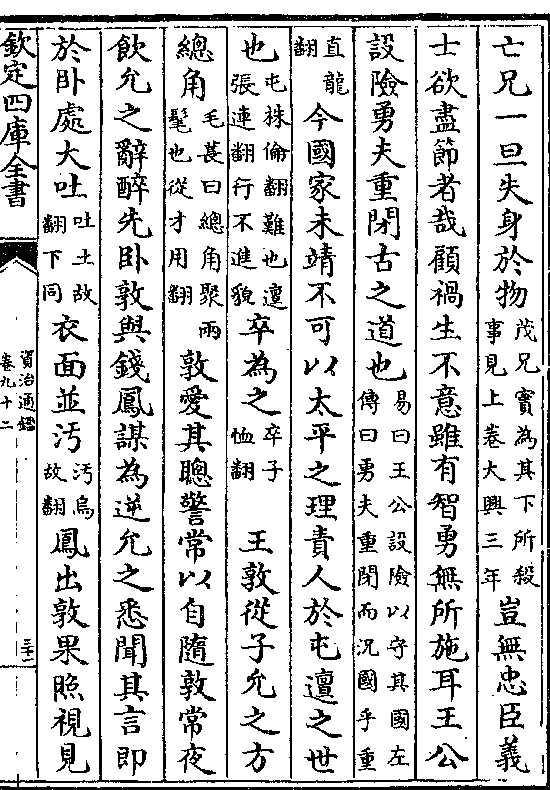 亡兄一旦失身於物茂兄寳為其下所殺事見上巻大興三年豈無忠臣義
士欲盡節者哉顧禍生不意雖有智勇無所施耳王公
設險勇夫重閉古之道也易曰王公設險以守其國左傳曰勇夫重閉而况國乎重
直龍翻今國家未靖不可以太平之理責人於屯邅之世
也屯株倫翻難也邅張連翻行不進貌卒為之卒子恤翻王敦從子允之方
總角毛萇曰總角聚兩髦也從才用翻敦愛其聰警常以自隨敦常夜
飲允之辭醉先卧敦與錢鳳謀為逆允之悉聞其言即
於卧處大吐吐土故翻下同衣面並汚汚烏故翻鳳出敦果照視見
欽定四庫全書
資治通鑑
卷九十二
三十二